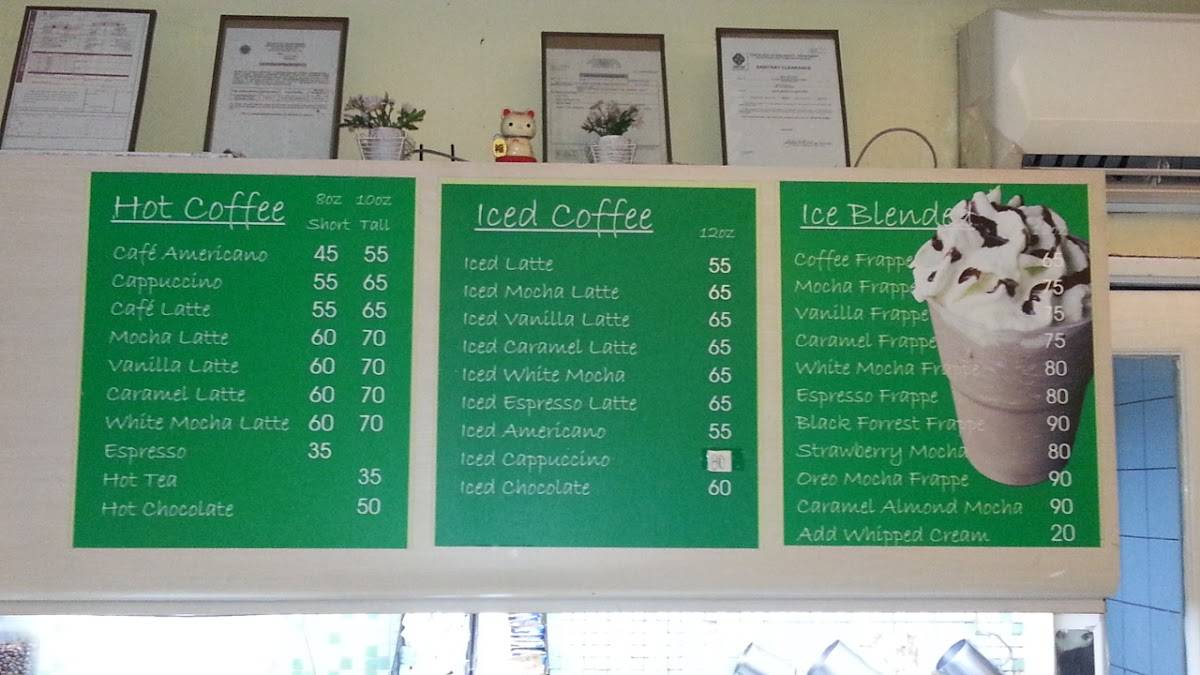 SANITARY CLEARANCE
Hot Coffee 8oz 10oz
Short Tall
Café Americano 45 55
Cappuccino 55 65
Café Latte 55 65
Mocha Latte 60 70
Vanilla Latte 60 70
Caramel Latte 60 70
White Mocha Latte 60 70
Espresso 35
Hot Tea 35
Hot Chocolate 50
Iced Coffee 12oz
Iced Latte 55
Iced Mocha Latte 65
Iced Vanilla Latte 65
Iced Caramel Latte 65
Iced White Mocha 65
Iced Espresso Latte 65
Iced Americano 55
Iced Cappuccino
Iced Chocolate 60
Ice Blended
Coffee Frappe 65
Mocha Frappe 75
Vanilla Frappe 75
Caramel Frappe 75
White Mocha Frappe 80
Espresso Frappe 80
Black Forrest Frappe 90
Strawberry Mocha 80
Oreo Mocha Frappe 90
Caramel Almond Mocha 90
Add Whipped Cream 20